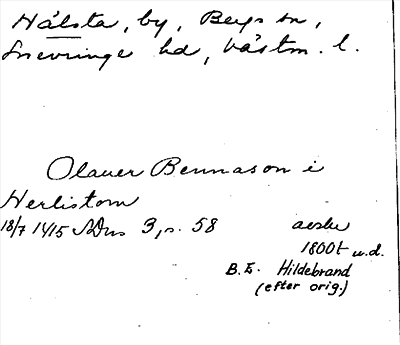 Hålsta, by, Bergs sn,
Snevringe hd, Västm. l.
Olauer Bennason i
Herlistom
18/7 1415 SDns 3, s. 58
avskr
1800t u.d.
B.E. Hildebrand
(efter orig.)